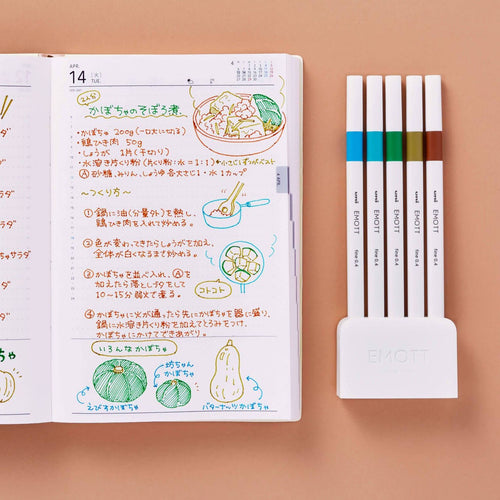 APR.
14 (火)
TUE.
4
2人分
かぼちゃのそぼろ煮
・かぼちゃ 200g (一口大に切る)
・鶏ひき肉 50g
・しょうが 1片(千切り)
・水溶き片くり粉 (片くり粉:水=1:1)
Ⓐ 砂糖、みりん、しょうゆ 各大さじ1・水1カップ
〜つくり方〜
① 鍋に油(分量外)を熱し、
鶏ひき肉を入れて炒める。
② 色が変わってきたらしょうがを加え、
全体が白くなるまで炒める。
③ かぼちゃを並べ入れ、Ⓐを
加えたら落としブタをして
10〜15分弱火で煮る。
コトコト
④ かぼちゃに火が通ったら先にかぼちゃを器に盛り、
鍋に水溶き片くり粉を加えてとろみをつけ、
かぼちゃにかけてできあがり。
いろんなかぼちゃ
えびすかぼちゃ
坊ちゃんかぼちゃ
バターナッツかぼちゃ
サラダ
ラダ
サラダ
ゃサラダ
ダ
ちゃ
uni EMOTT fine 0.4
uni EMOTT fine 0.4
uni EMOTT fine 0.4
uni EMOTT fine 0.4
uni EMOTT fine 0.4
EMOTT